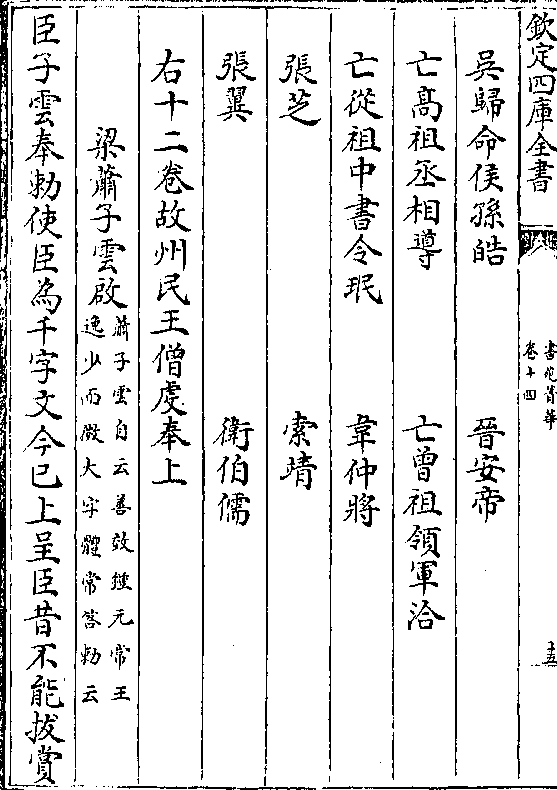 欽定四庫全書
書苑菁華
卷十四
十五
吳歸命侯孫皓　晉安帝
亡髙祖丞相導　亡曾祖領軍洽
亡從祖中書令珉　韋仲將
張芝　索靖
張翼　衛伯儒
右十二卷故州民王僧虔奉上
梁蕭子雲啟
蕭子雲自云善效鍾元常王
逸少而微大字體常答勅云
臣子雲奉勅使臣為千字文今已上呈臣昔不能拔賞